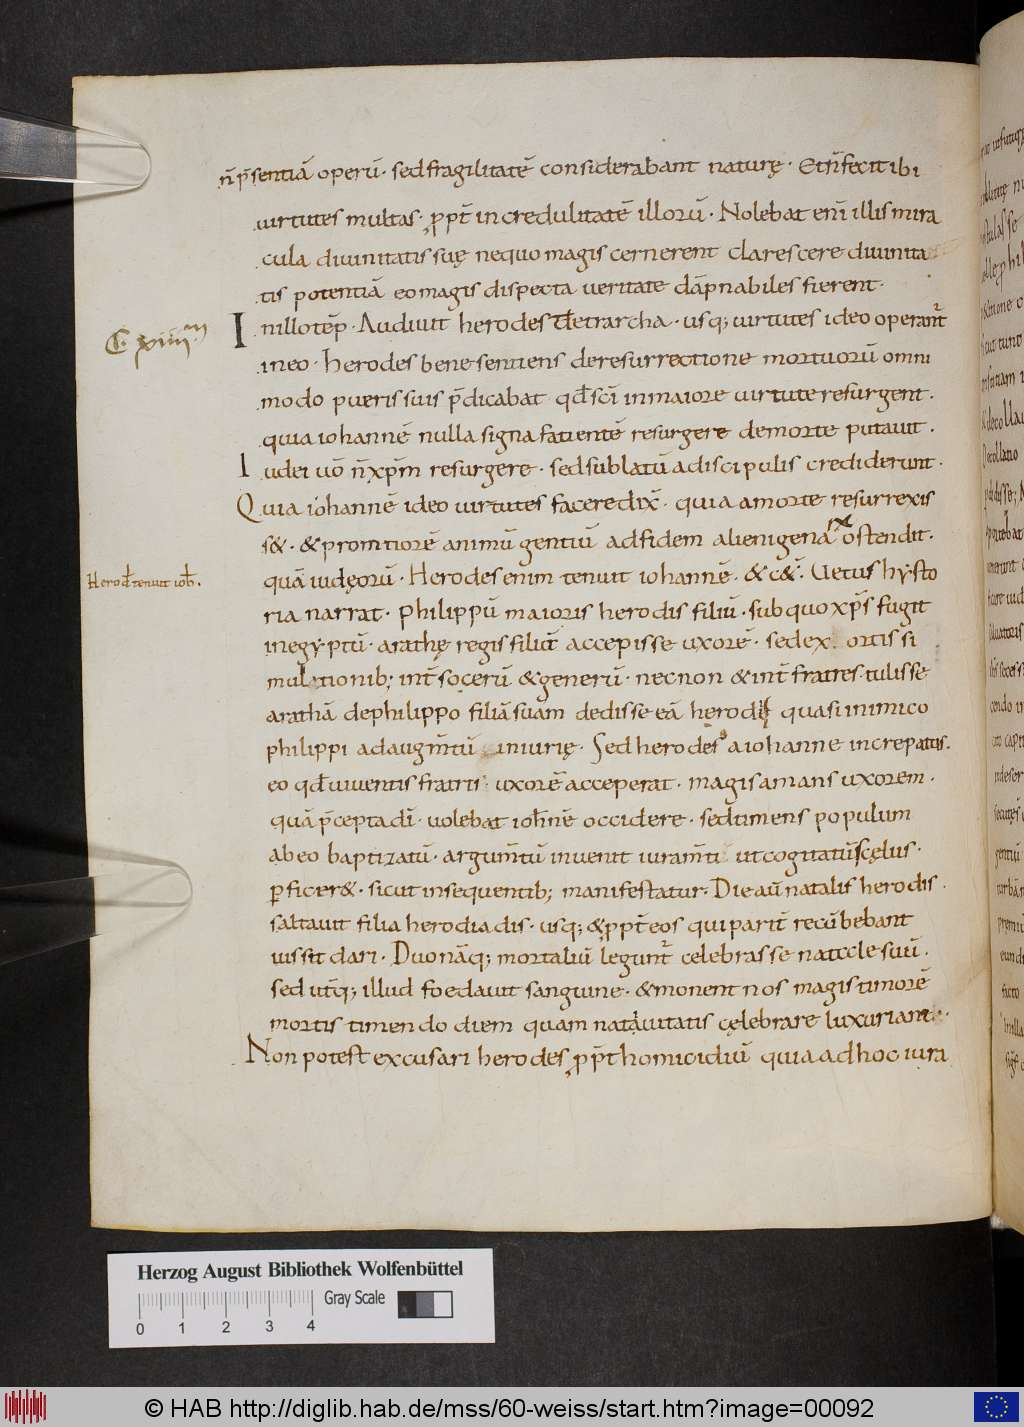 n̄ p̄sentiā operū · sed fragilitatē considerabant naturę · Et n̄ fecit ibi
virtutes multas · ꝓpt̄ incredulitatē illorū · Nolebat enī illis mira
cula divinitatis suę ne quo magis cernerent clarescere divinita
tis potentiā eo magis dispecta veritate dāpnabiles fierent ·
C. xiiii.
In illo tēp · Audivit herodes tetrarcha · usq; virtutes ideo operant̄
in eo · herodes bene sentiens de resurrectione mortuorū omni
modo pueris suis p̄dicabat qd̄ sc̄i in maiore virtute resurgent .
quia iohannē nulla signa facientē resurgere de morte putavit .
Iudei vō n̄ xp̄m resurgere · sed sublatū a discipulis crediderunt ·
Quia iohannē ideo virtutes facere dix̄ · quia a morte resurrexis
s& · & promtiorē animū gentiū ad fidem alienigena rex ostendit ·
Herod̄ tenuit ioh̄.
quā iudęorū · Herodes enim tenuit iohannē · & c&̄ · Vetus hysto
ria narrat · philippū maioris herodis filiū · sub quo xp̄s fugit
in egyptū · arathę regis filiā accepisse uxorē · sed ex ortis si
multationib; int̄ socerū & generū · necnon & int̄ fratres · tulisse
arathā de philippo filiā suam dedisse eā herodi quasi inimico
philippi ad augm̄tū iniurię · Sed herodes a iohanne increpatus .
eo qd̄ viventis fratris uxorē acceperat · magis amans uxorem ·
quā p̄cepta dī · volebat ioh̄nē occidere · sed timens populum
ab eo baptizatū · argum̄tū invenit iuram̄ti ut cogitatū scęlus ·
ꝑficer& · sicut in sequentib; manifestatur · Die aū natalis herodis .
saltavit filia herodiadis · usq; & ꝓpt̄ eos qui parit̄ recūbebant
iussit dari · Duo nāq; mortaliū legunt̄ celebrasse natale suū ·
sed utq̄; illud foedavit sanguine · & monent nos magis timorē
mortis timendo diem quam nativitatis cęlebrare luxuriant ·
Non potest excusari herodes ꝓpt̄ homicidiū quia ad hoc iura
Herzog August Bibliothek Wolfenbüttel
Gray Scale
0 1 2 3 4
© HAB http://diglib.hab.de/mss/60-weiss/start.htm?image=00092